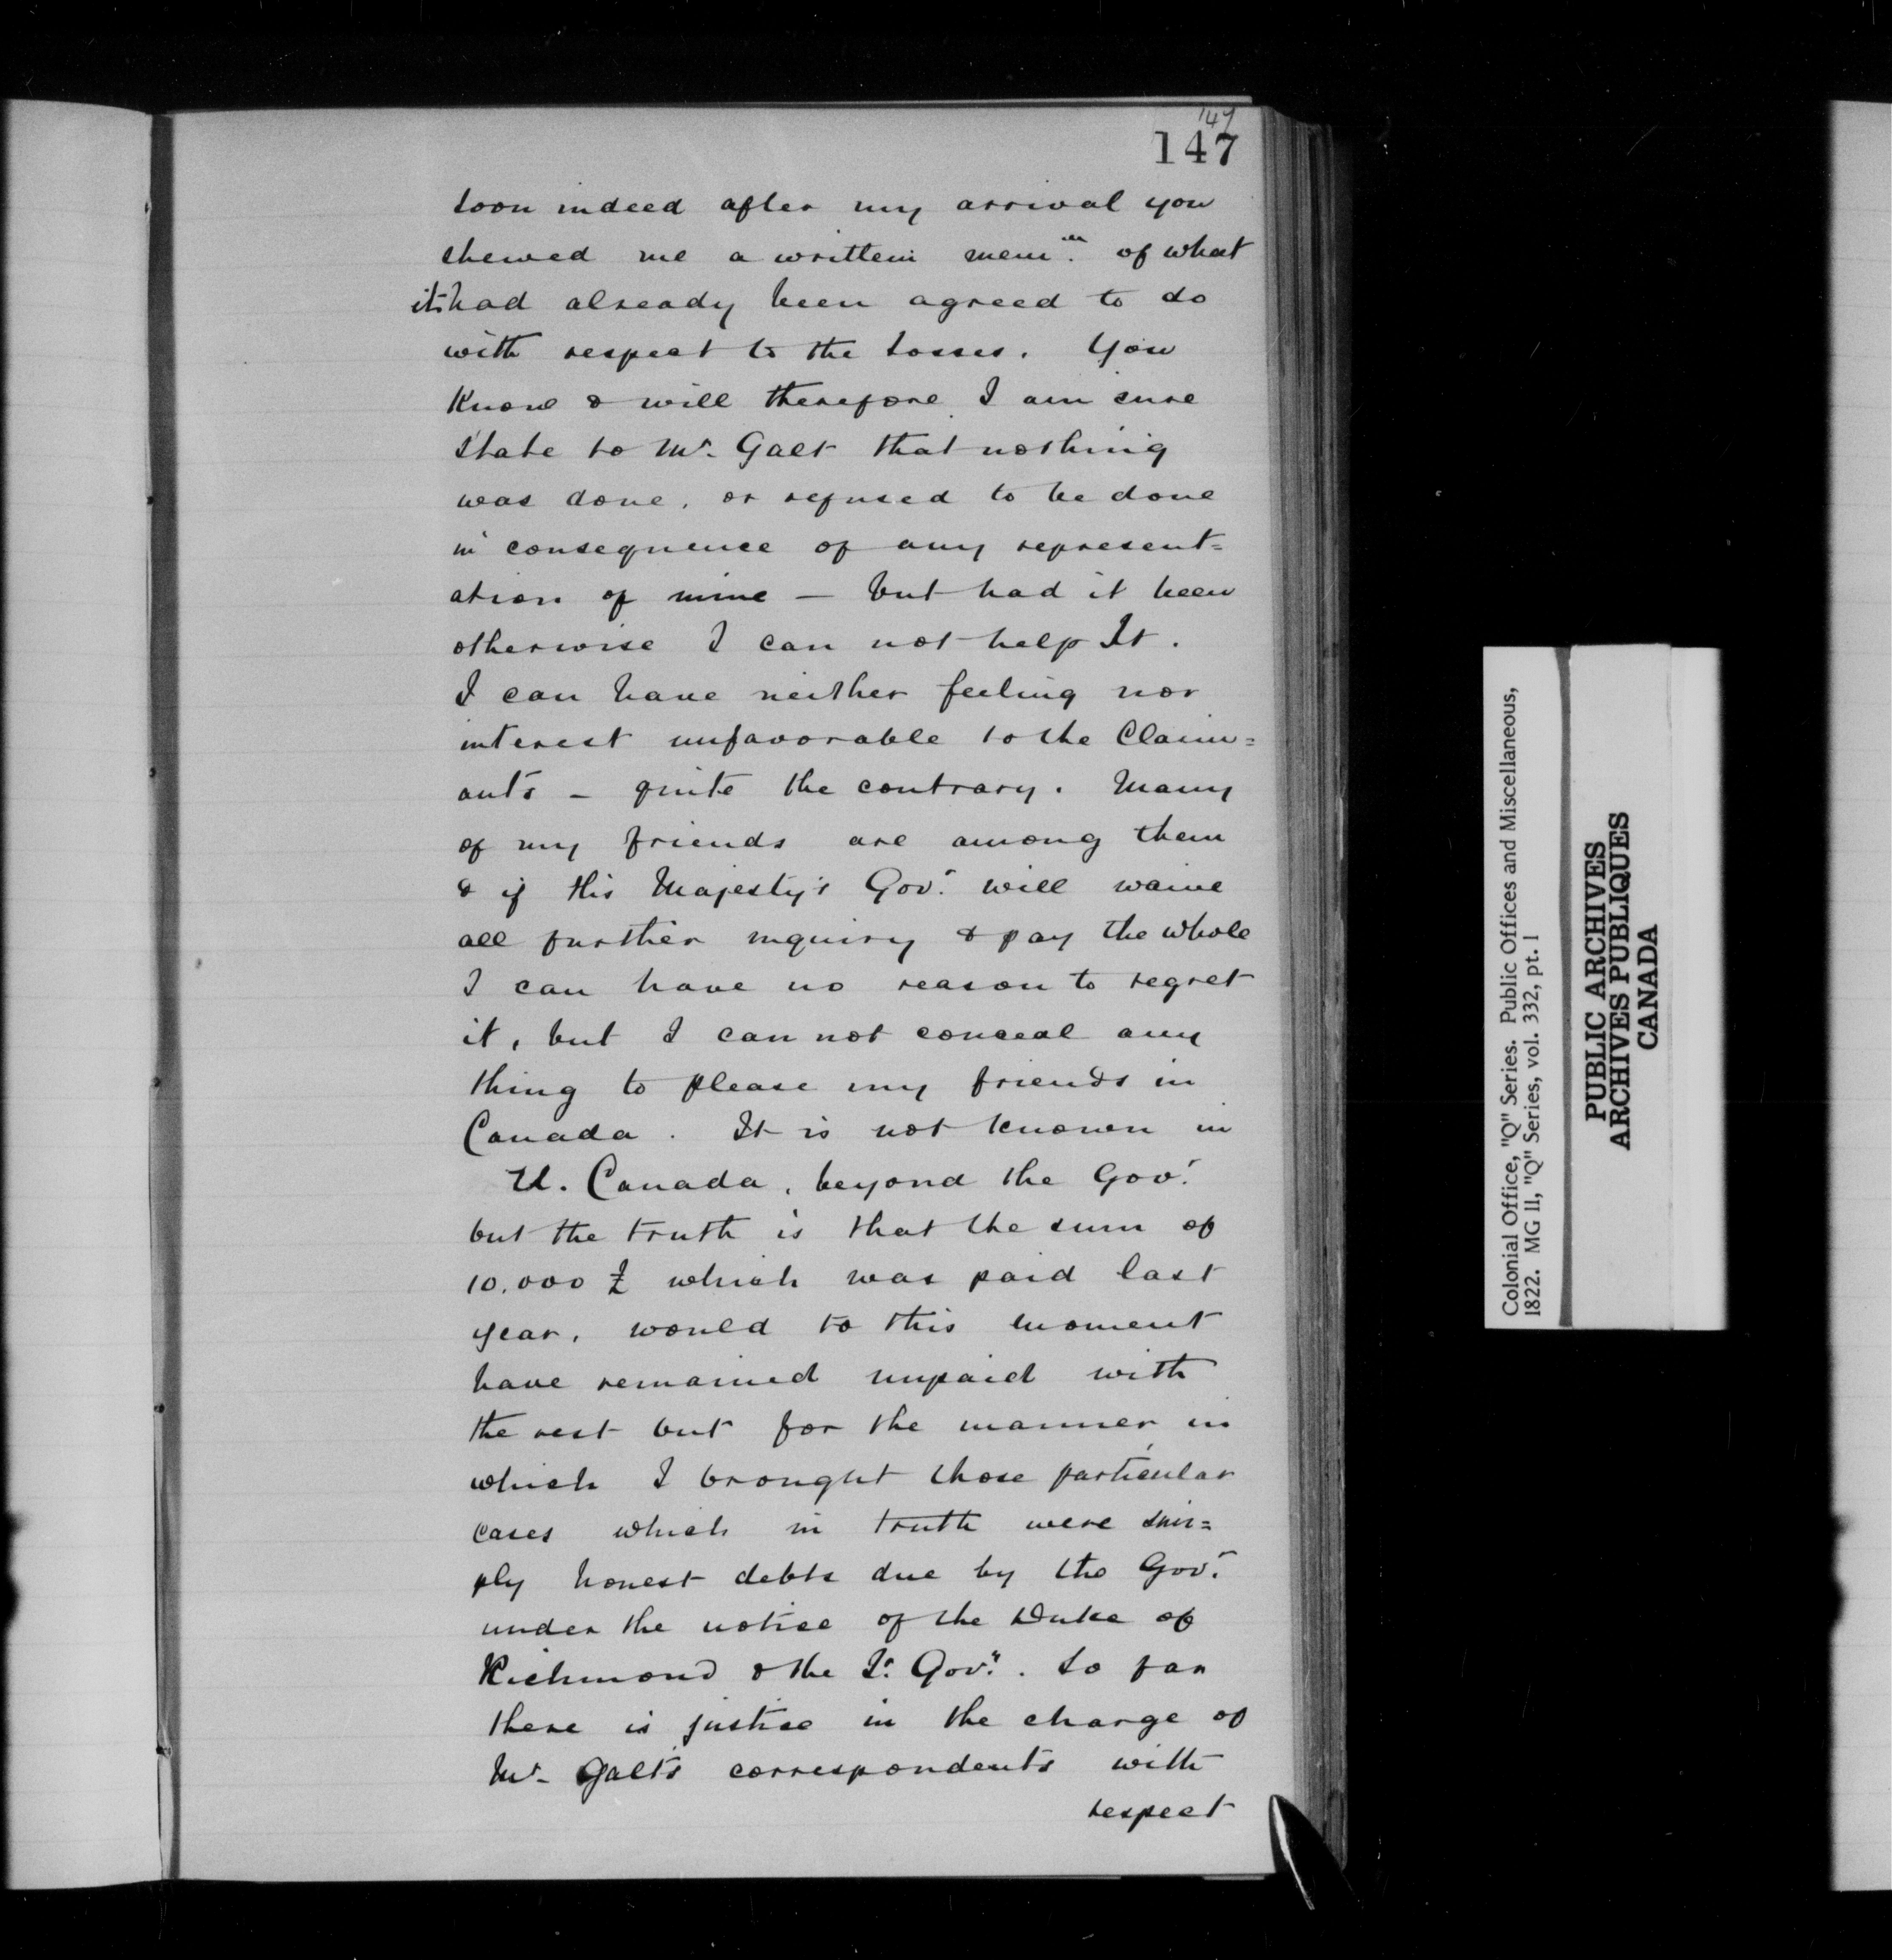 147
147
soon indeed after my arrival you
shewed me a written mem.m of what
it had already been agreed to do
with respect to the losses. You
Know & will therefore I am sure
state to Mr. Galt that nothing
was done, or refused to be done
in consequence of any represent=
ation of mine — but had it been
otherwise I can not help It.
I can have neither feeling nor
interest unfavorable to the Claim=
ants — quite the contrary. Many
of my friends are among them
& if His Majesty's Govt. will waive
all further inquiry & pay the whole
I can have no reason to regret
it, but I can not conceal any
thing to please my friends in
Canada. It is not known in
U. Canada, beyond the Govt.
but the truth is that the sum of
10.000 £ which was paid last
year, would to this moment
have remained unpaid with
the rest but for the manner in
which I brought those particular
cases which in truth were sim=
ply honest debts due by the Govt.
under the notice of the Duke of
Richmond & the Lt. Govr. So far
there is justice in the charge of
Mr. Galt's correspondents with
respect
Colonial Office, "Q" Series. Public Offices and Miscellaneous,
1822. MG 11, "Q" Series, vol. 332, pt. 1
PUBLIC ARCHIVES
ARCHIVES PUBLIQUES
CANADA